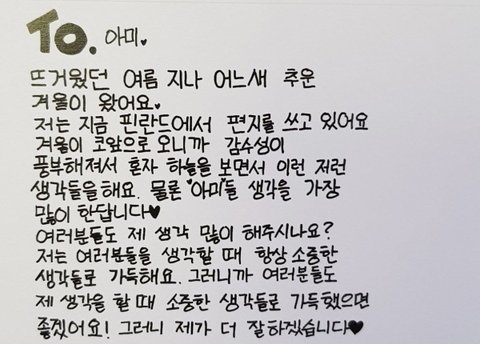 To. 아미♥
뜨거웠던 여름 지나 어느새 추운
겨울이 왔어요♥
저는 지금 핀란드에서 편지를 쓰고 있어요
겨울이 코앞으로 오니까 감수성이
풍부해져서 혼자 하늘을 보면서 이런 저런
생각들을 해요. 물론 "아미"들 생각을 가장
많이 한답니다♥
여러분들도 제 생각 많이 해주시나요?
저는 여러분들을 생각할 때 항상 소중한
생각들로 가득해요. 그러니까 여러분들도
제 생각을 할 때 소중한 생각들로 가득했으면
좋겠어요! 그러니 제가 더 잘하겠습니다♥